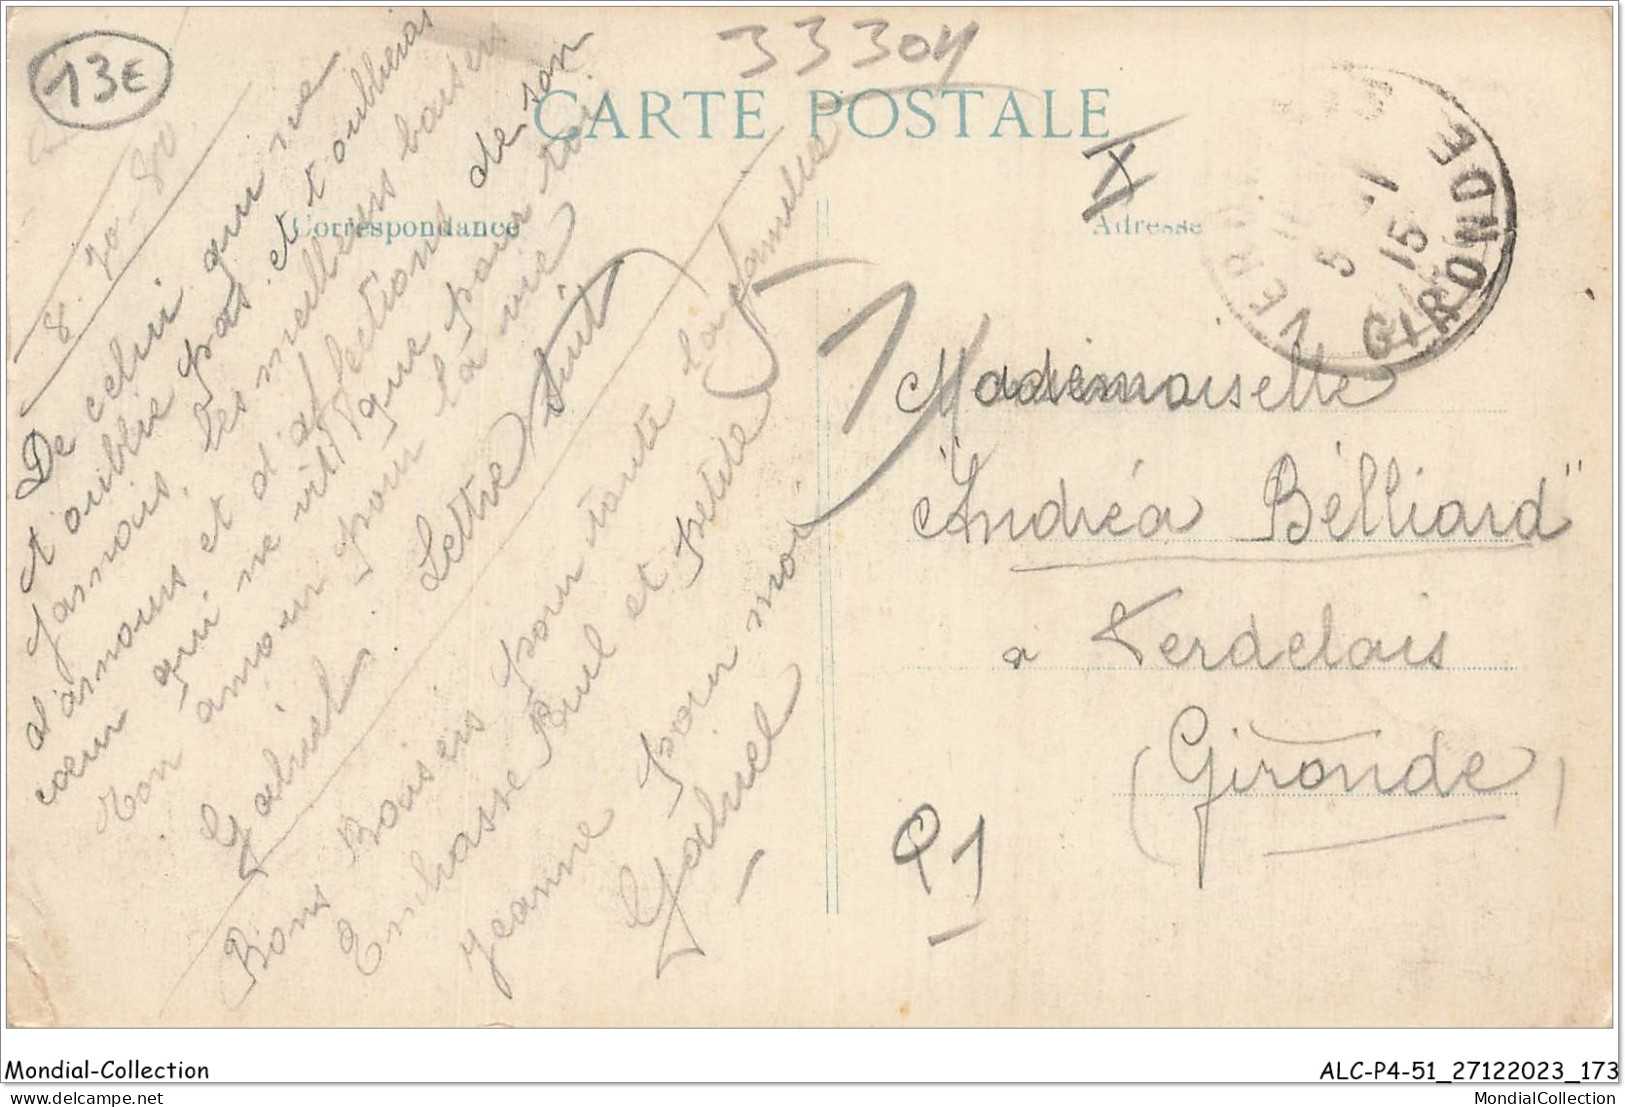 13E
33304
CARTE POSTALE
Correspondance
Adresse
De celui qui ne
t'oublie pas et t'oublieras
jamais. les meilleurs baisers
d'amour et d'affections de son
cœur qui ne vit que pour toi
Ton amour pour la vie
Gabriel. Lettre suit
Bons Baisers pour toute la famille
Embrasse Paul et petite
Jeanne pour moi
Gabriel
Mademoiselle
"Andréa Bélliard"
a Verdelais
(Gironde)
GIRONDE
15
91
Mondial-Collection
ALC-P4-51_27122023_173
delcampe.net
MondialCollection